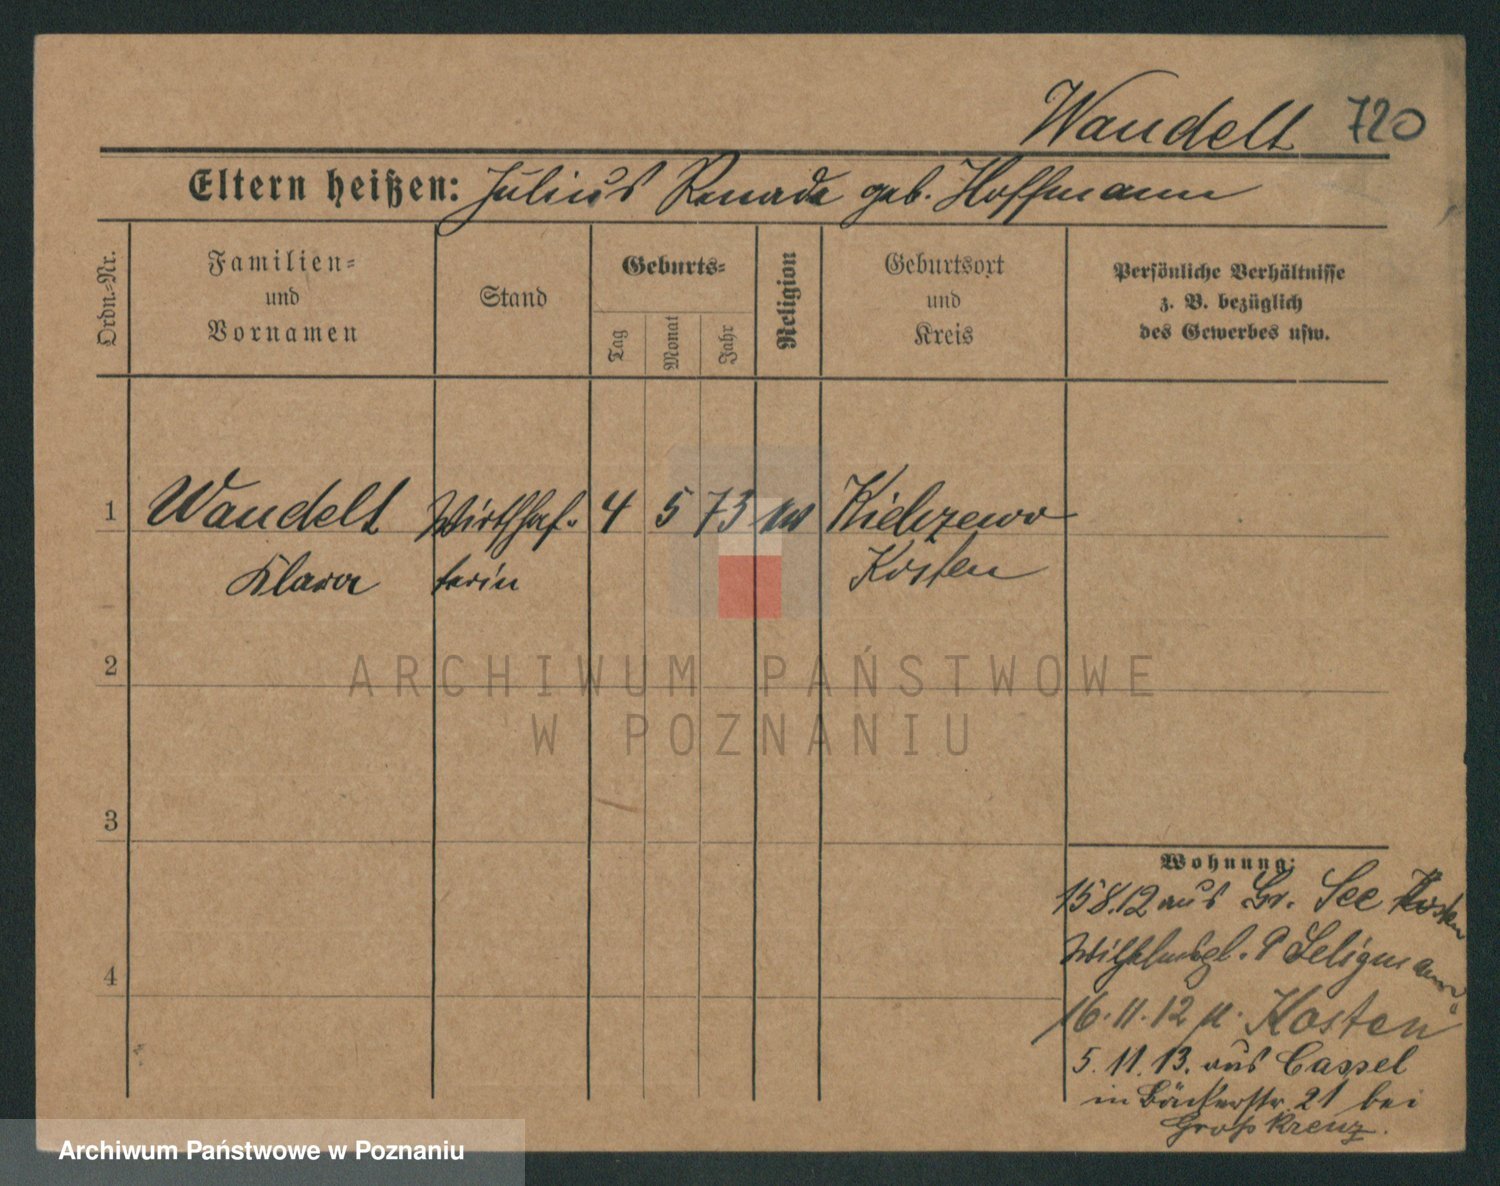 Wandelt 720
Eltern heißen: Julius Renada geb. Hoffmann
Ordn.=Nr.
Familien=
und
Vornamen
Stand
Geburts=
Tag
Monat
Jahr
Religion
Geburtsort
und
Kreis
Persönliche Verhältnisse
z. B. bezüglich
des Gewerbes usw.
1 Wandelt Wirthschaf- 4 5 73 Kielczewo
Klara terin Kosten
2
ARCHIWUM PAŃSTWOWE
W POZNANIU
3
4
Wohnung:
15 8.12 aus Gr. See Kosten
Seligmann
16.11.12 n. Kosten
5.11.13. aus Cassel
in Bäckerstr. 21 bei
Groß Krenz.
Archiwum Państwowe w Poznaniu